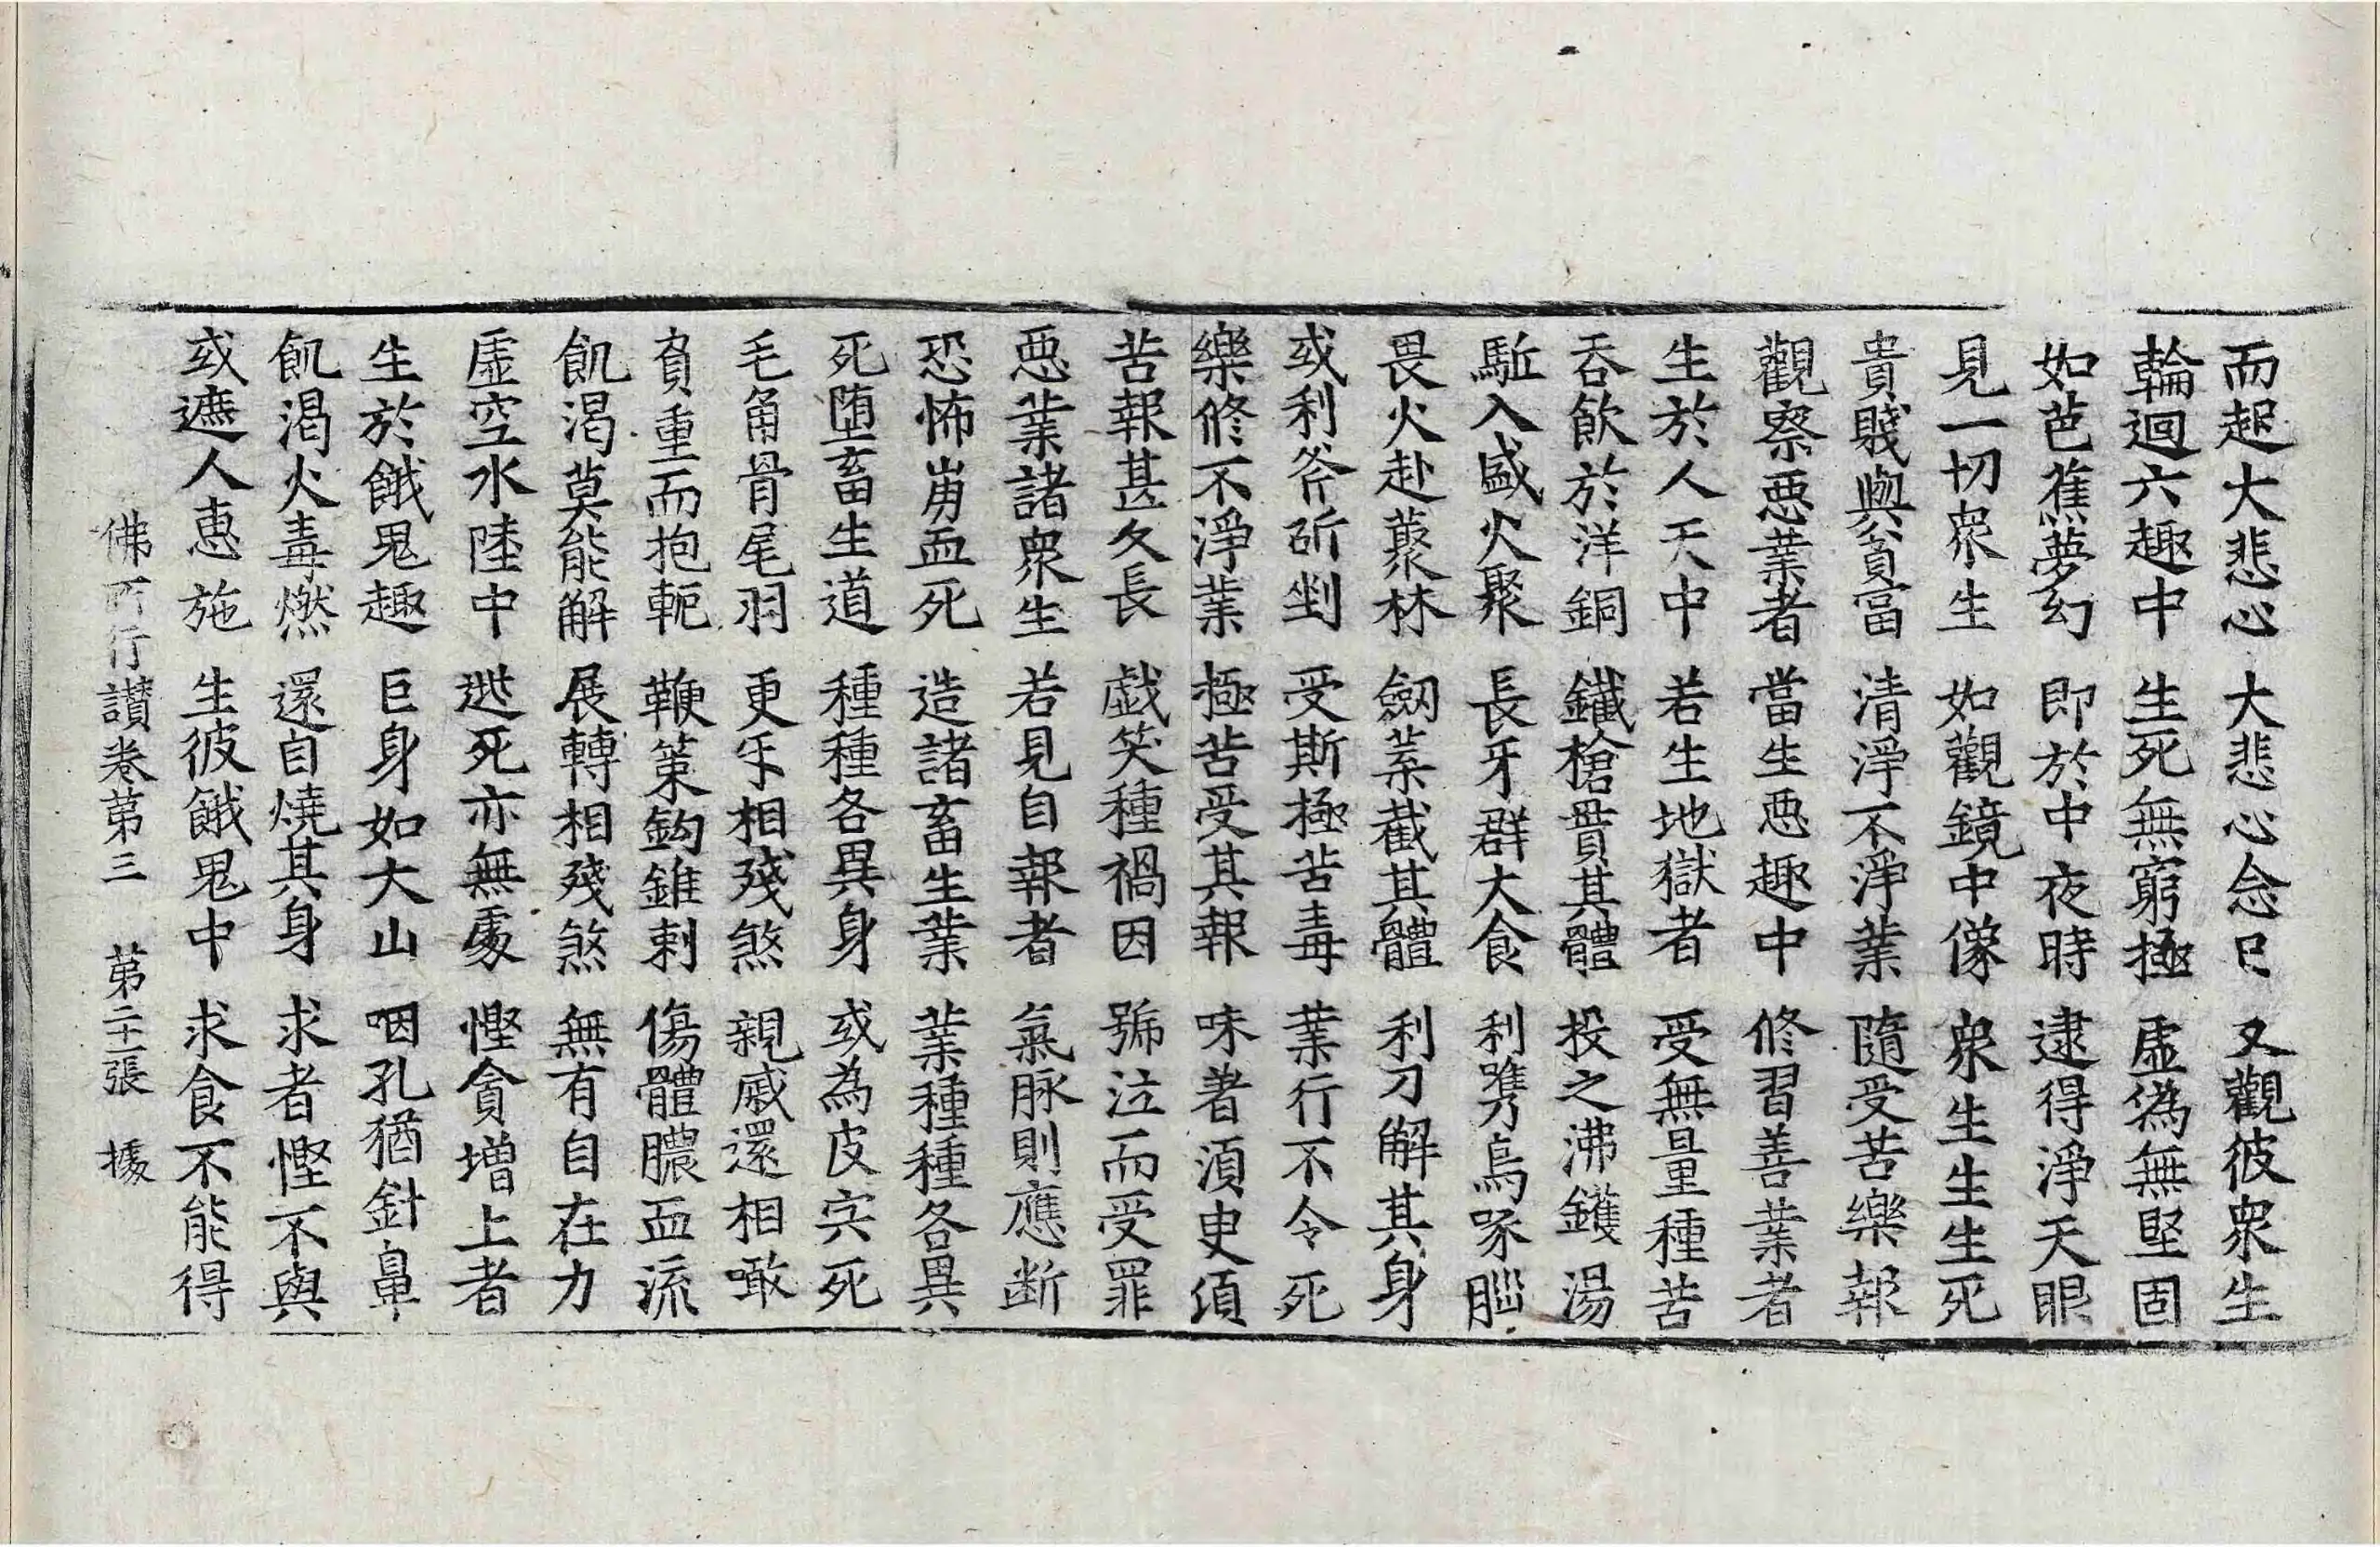 而起大悲心 大悲心念已 又觀彼衆生
輪迴六趣中 生死無窮極 虛偽無堅固
如芭蕉夢幻 即於中夜時 逮得淨天眼
見一切衆生 如觀鏡中像 衆生生生死
貴賤與貧富 清淨不淨業 隨受苦樂報
觀察惡業者 當生惡趣中 修習善業者
生於人天中 若生地獄者 受無量種苦
吞飲於洋銅 鐵槍貫其體 投之沸鑊湯
駈入盛火聚 長牙群犬食 利㭰鳥啄腦
畏火赴藂林 劒葉截其體 利刀解其身
或利斧斫剉 受斯極苦毒 業行不令死
樂修不淨業 極苦受其報 味著須臾頃
苦報甚久長 戲笑種禍因 號泣而受罪
惡業諸衆生 若見自報者 氣脉則應断
恐怖崩血死 造諸畜生業 業種種各異
死墮畜生道 種種各異身 或為皮宍死
毛角骨尾羽 更乎相殘煞 親戚還相噉
負重而抱軛 鞭策鈎錐刺 傷體膿血流
飢渴莫能解 展轉相殘煞 無有自在力
虛空水陸中 逃死亦無處 慳貪增上者
生於餓鬼趣 巨身如大山 咽孔猶針鼻
飢渴火毒燃 還自燒其身 求者慳不與
或遮人惠施 生彼餓鬼中 求食不能得
佛所行讃卷第三 第二十一張 據